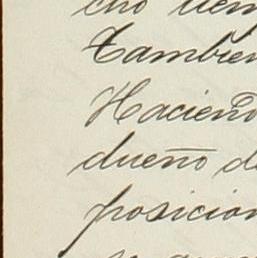 cho tiem
Tambien
Haciend
dueño d
posicion